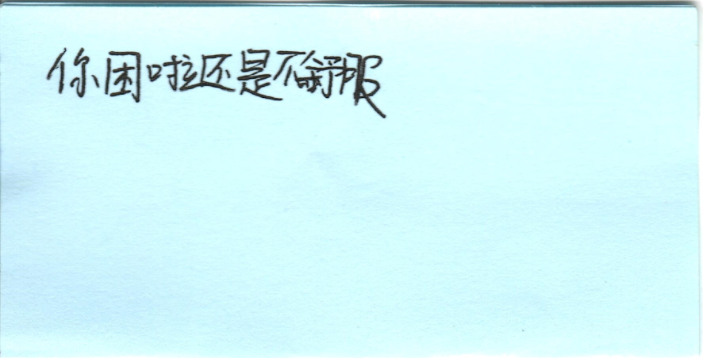 你困啦还是不舒服